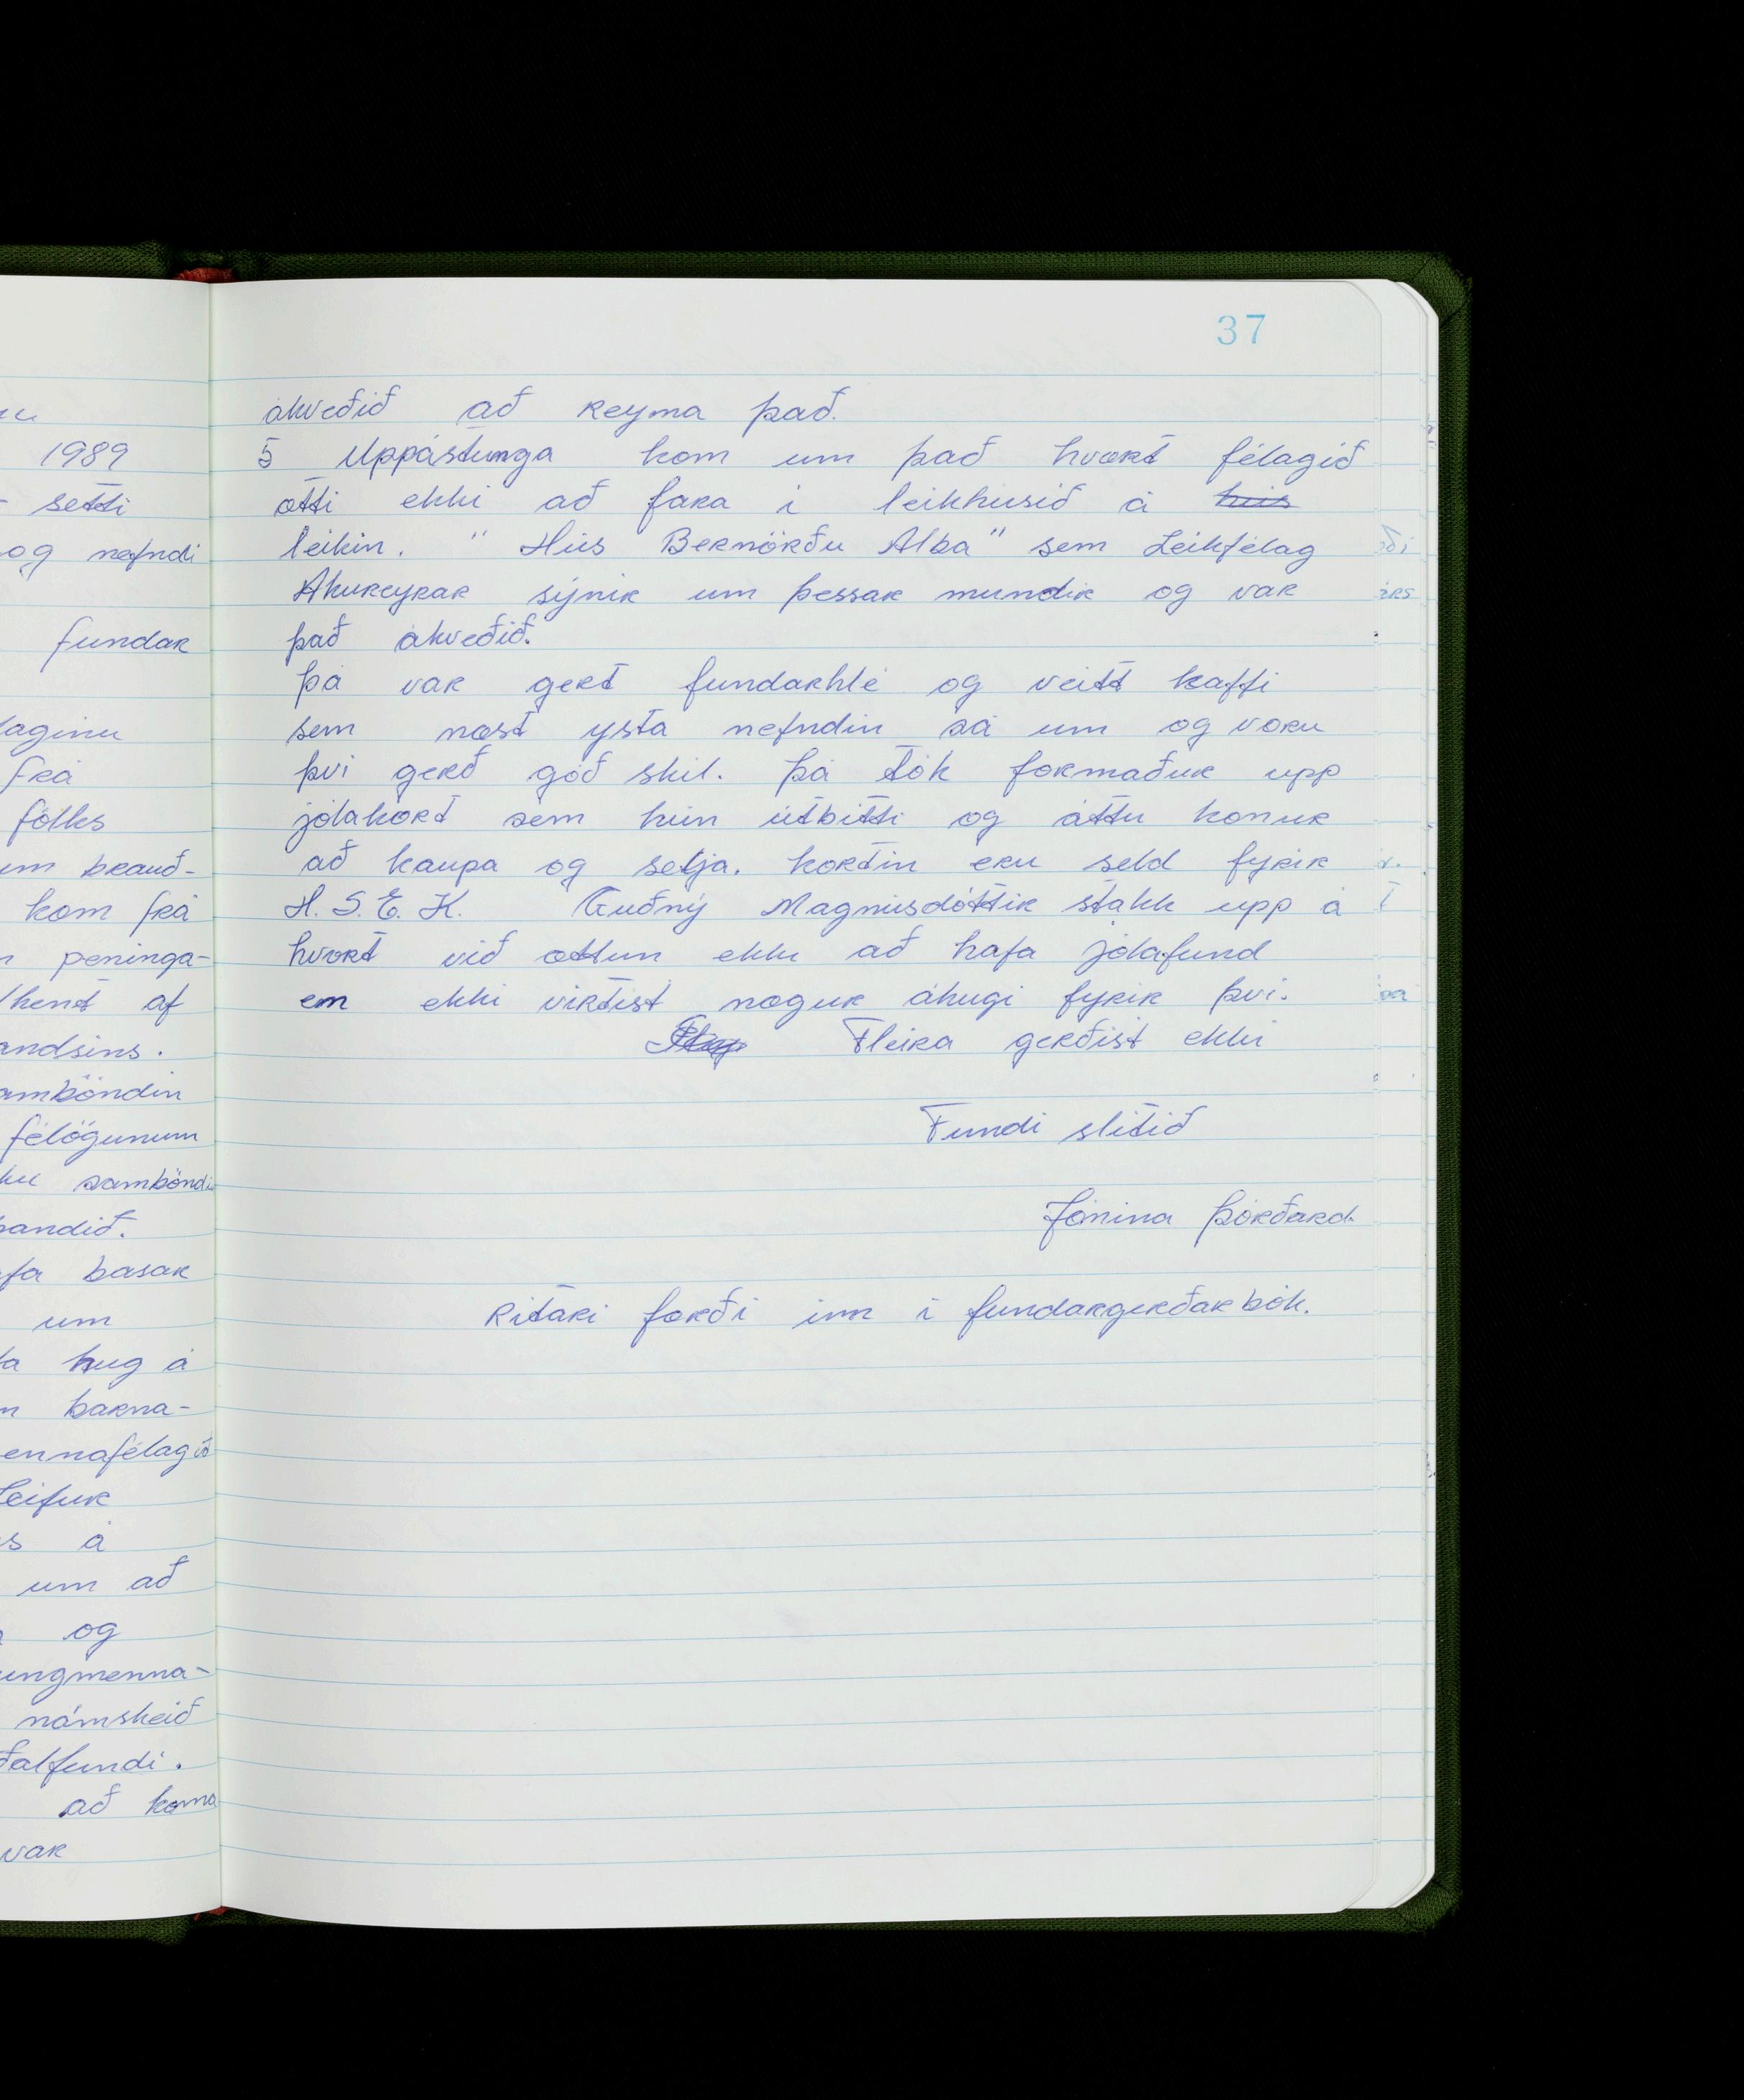 37
ákveðið að reyma það.
5 Uppástunga kom um það hvort félagið
ætti ekki að fara í leikhúsið á hús
leikin. " Hús Bernörðu Alba" sem Leikfélag
Akureyrar sýnir um þessar mundir og var
það ákveðið.
þá var gert fundarhlé og veitt kaffi
sem næst ysta nefndin sá um og voru
því gerð góð skil. þá tók formaður upp
jólakort sem hún útbítti og áttu konur
að kaupa og selja. kortin eru seld fyrir
H. S. E. K. Guðný Magnúsdóttir stakk upp á
hvort við ættun ekki að hafa jólafund
en ekki virtist nægur áhugi fyrir því.
Fleira gerðist ekki
Fundi slitið
Jónína Þórðard.
Ritari færði inn í fundargerðarbók.
1989
setti
og nefndi
fundar
laginu
frá
fólks
um brauð-
kom frá
peninga-
hent af
andsins.
amböndin
félögunum
ku samböndi
bandið.
fa basar
um
la hug á
n barna-
ennafélagið
Leifur
s á
um að
og
ungmenna-
námskeið
ðalfundi.
að koma
var